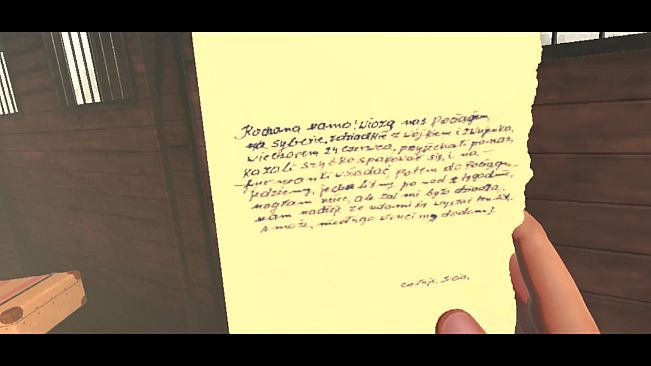 Kochana mamo! Wiozą nas Pociągiem,
na Syberię, z dziadkie z wójkiem i zwujenką,
wieczorem 24 czerwca, przyjechali po nas,
Kazali szybko spakować się, i na
furmanki wsiadać, Potem do Pociągu
jedziemy, jechaliśmy ponad 2 tygodnie,
mogłam uciec, ale żal mi było dziadka.
mam nadzieję że uda mi się wysłać ten list.
a może, niedługo wrucimy dodomu!
całuje.